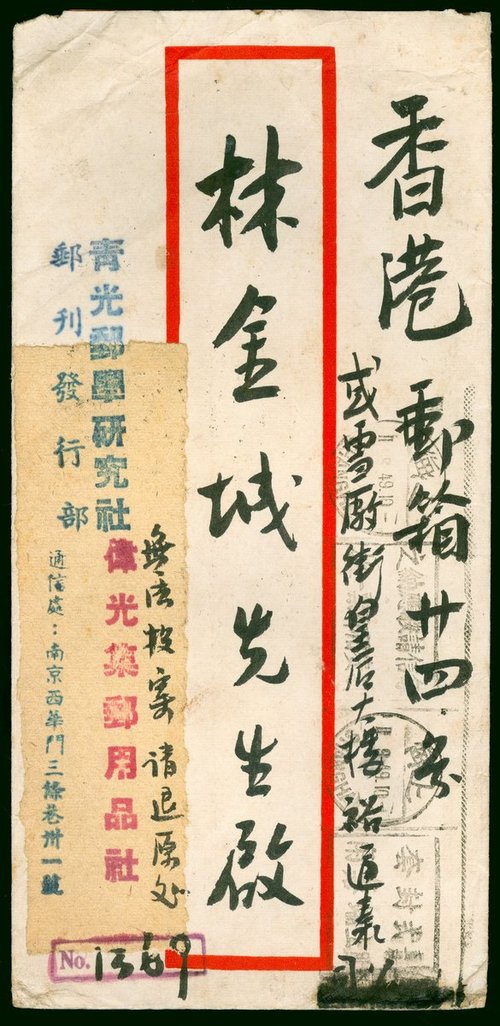 香港郵箱廿四号
或雪厰街皇后大樓裕通泰
林金城先生啟
無法投寄請退原处
偉光集郵用品社
青光郵學研究社
郵刊發行部
通信處：南京西華門三條巷卅一號
No.